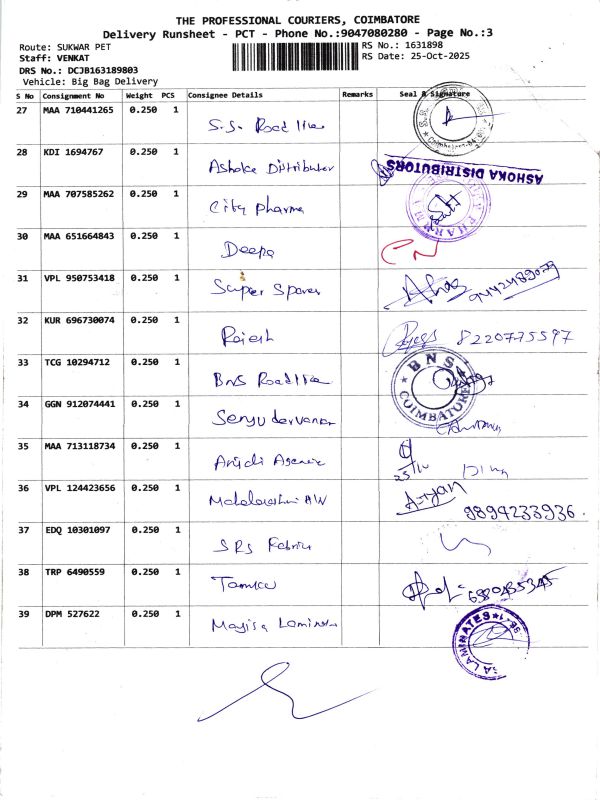 THE PROFESSIONAL COURIERS, COIMBATORE
Delivery Runsheet - PCT - Phone No.:9047080280 - Page No.:3
Route: SUKWAR PET
RS No.: 1631898
Staff: VENKAT
RS Date: 25-Oct-2025
DRS No.: DCJB163189803
Vehicle: Big Bag Delivery
S No Consignment No Weight PCS Consignee Details Remarks Seal & Signature
27 MAA 710441265 0.250 1
S.S. Road line
28 KDI 1694767 0.250 1
Ashoka Distributor ASHOKA DISTRIBUTORS
29 MAA 707585262 0.250 1
City Pharma
30 MAA 651664843 0.250 1
Deepa
31 VPL 950753418 0.250 1
Super Spares 9442489079
32 KUR 696730074 0.250 1
Rajesh 8220775597
33 TCG 10294712 0.250 1
BNS Roadline BNS COIMBATORE
34 GGN 912074441 0.250 1
35 MAA 713118734 0.250 1
25/10
36 VPL 124423656 0.250 1
Mahalakshmi HW Aryan
9894233936.
37 EDQ 10301097 0.250 1
SRS Fabrics
38 TRP 6490559 0.250 1
39 DPM 527622 0.250 1
LAMINATES